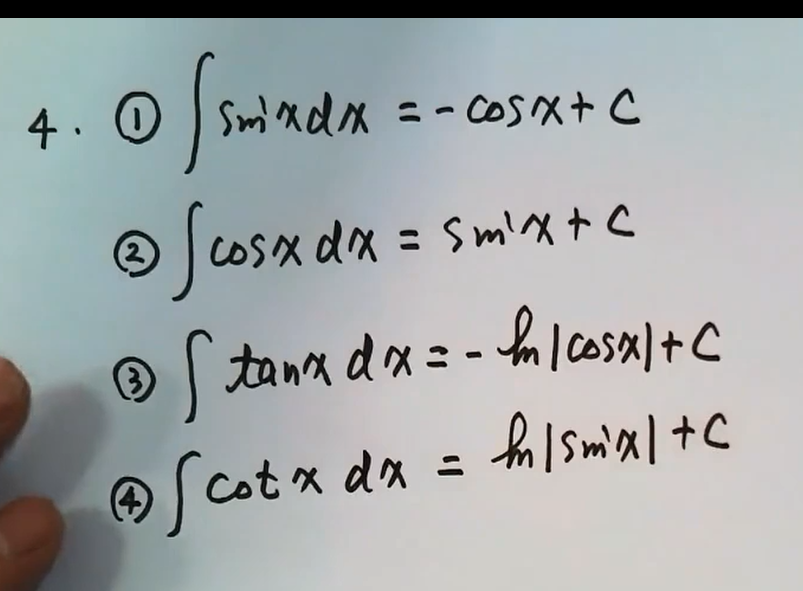 4. ① ∫ sinx dx = -cosx + C
② ∫ cosx dx = sinx + C
③ ∫ tanx dx = - ln|cosx| + C
④ ∫ cotx dx = ln|sinx| + C